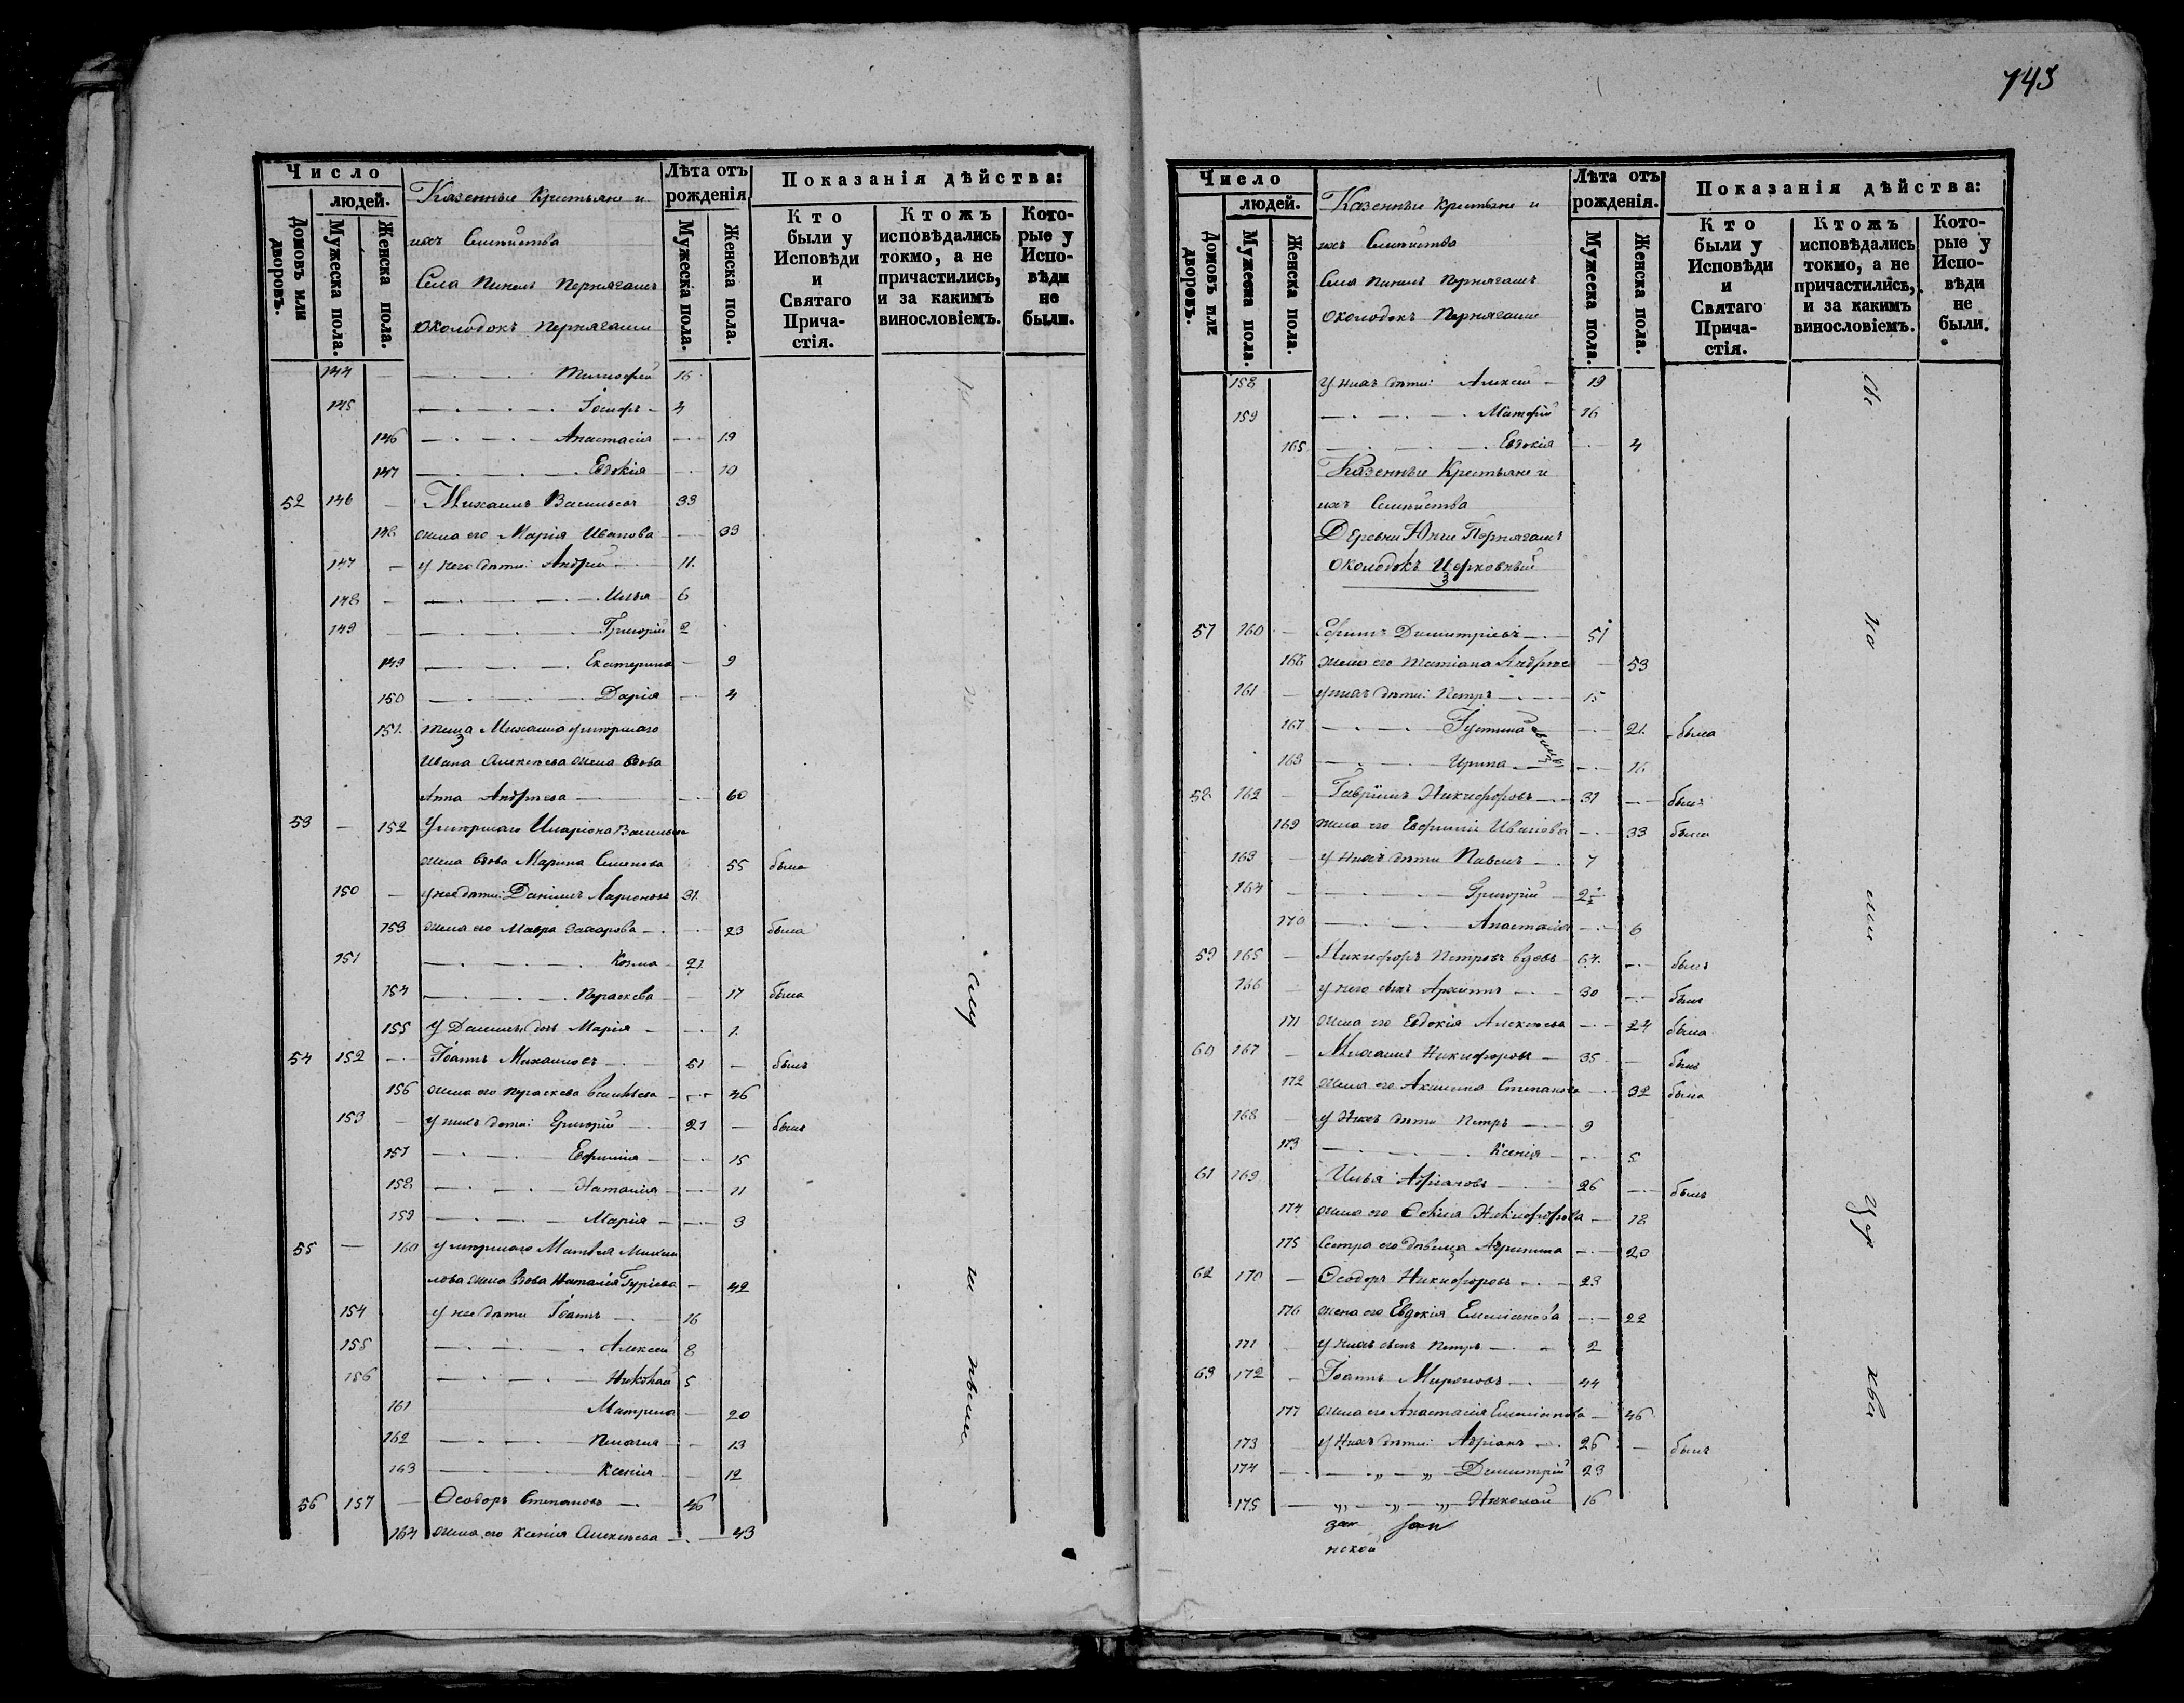 Число
людей.
Домовъ или дворовъ.
Мужеска пола.
Женска пола.
Казенные Крестьяне и
ихъ Семѣйства
Села
Околодокъ
Лѣта отъ рожденія
Мужеска пола.
Женска пола.
Показанія дѣйства:
Кто были у Исповѣди и Святаго Прича-стія.
Ктожъ исповѣдались токмо, а не причастились, и за какимъ винословіемъ.
Кото-рые у Испо-вѣди не были.
144 — Тимофей 16
145 — Іосифъ 4
146 — Анастасія — 19
147 — Евдокія — 10
52 146 — Михаилъ Васильевъ 33
148 жена его Марія Иванова — 33
147 — у него дѣти: Андрей — 11
148 — Илья 6
149 — Григорій 2
149 — Екатерина — 9
150 — Дарія — 4
151 теща Михаила умершаго
Ивана Алексѣева жена вдова
Анна Андреева — 60
53 — 152 Умершаго Иларіона Васильева
жена вдова Марина Семенова 55 была
150 — у нее дѣти: Даніилъ Ларіоновъ 31
153 жена его Мавра Захарова — 23 была
151 — Козма 21
154 — Параскева — 17 была
155 У Даніила дочь Марія — 1
54 152 — Іоаннъ Михаиловъ 51 — былъ
156 жена его Параскева Васильева — 46
153 — у нихъ дѣти: Григорій 21 — былъ
157 — Евфимія — 15
158 — Наталія — 11
159 — Марія — 3
55 — 160 умершаго Матвея Михаи
лова жена вдова Наталія Гуріева — 42
154 у нее дѣти Іоаннъ — 16
155 — Алексей 8
156 — Николай 5
161 Матрена — 20
162 — Пелагія — 13
163 — Ксенія — 12
56 157 — Ѳеодоръ Степановъ — 46
164 жена его Ксенія Алексѣева — 43
743
Число
людей.
Домовъ или дворовъ.
Мужеска пола.
Женска пола.
Казенные Крестьяне и
ихъ Семѣйства
Села
Околодокъ
Лѣта отъ рожденія.
Мужеска пола.
Женска пола.
Показанія дѣйства:
Кто были у Исповѣди и Святаго Прича-стія.
Ктожъ исповѣдались токмо, а не причастились, и за какимъ винословіемъ.
Кото-рые у Испо-вѣди не были.
158 У нихъ дѣти: Алексей — 19
159 — Матфей 16
165 — Евдокія — 4
Казенные Крестьяне и
ихъ Семѣйства
Деревни
Околодокъ Церковный
57 160 — Ефимъ Димитріевъ — 51
166 жена его Татіана Андрее — 53
161 — у нихъ дѣти: Петръ — 15
167 — Іустина — 21 была
168 — Ирина — 16
58 162 — Гавріилъ Никифоровъ — 31 — былъ
169 жена его Евфимія Иванова — 33 была
163 — у нихъ дѣти Павелъ — 7
164 — Григорій 2
170 — Анастасія — 6
59 165 — Никифоръ Петровъ вдовъ 64 — былъ
166 — у него сынъ Архиппъ — 30 — былъ
171 жена его Евдокія Алексѣева — 24 была
60 167 — Михаилъ Никифоровъ — 35 — былъ
172 жена его Акилина Степанова — 32 была
168 — у Нихъ дѣти Петръ — 9
173 — Ксенія — 5
61 169 Илья Адріановъ — 26 — былъ
174 жена его Никифорова — 18
175 Сестра его дѣвица — 20
62 170 — Ѳеодоръ Никифоровъ — 23
176 жена его Евдокія Емеліанова — 22
171 у нихъ сынъ Петръ — 2
63 172 — Іоаннъ Мироновъ — 44
177 жена его Анастасія Емеліанова — 46
173 у Нихъ дѣти: Адріанъ — 26 — былъ
174 — „ — „ — Димитрій 23
175 — „ — „ — „ Николай 16